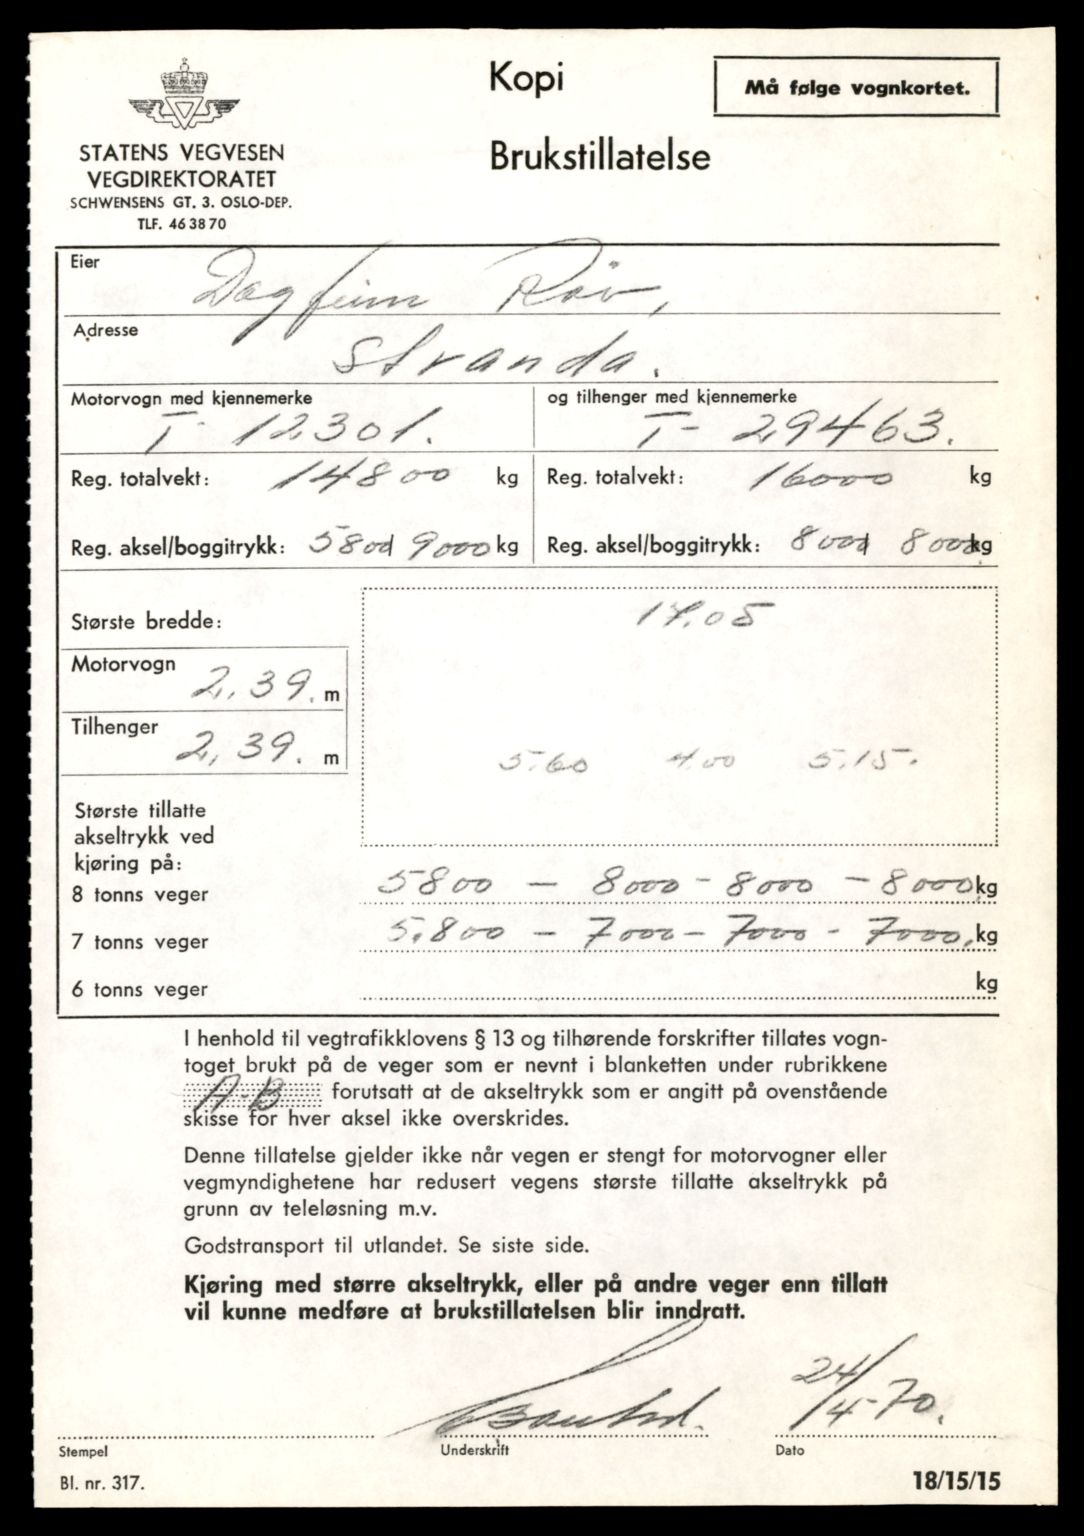 Kopi
Må følge vognkortet.
STATENS VEGVESEN
VEGDIREKTORATET
SCHWENSENS GT. 3. OSLO-DEP.
TLF. 46 38 70
Brukstillatelse
Eier
Dagfinn
Adresse
Stranda.
Motorvogn med kjennemerke
T- 12301.
og tilhenger med kjennemerke
T- 29463.
Reg. totalvekt: 14800 kg
Reg. totalvekt: 16000 kg
Reg. aksel/boggitrykk: 5800 9000 kg
Reg. aksel/boggitrykk: 8000 8000 kg
Største bredde:
17.05
Motorvogn 2,39. m
Tilhenger 2,39. m
5.60 4.00 5.15.
Største tillatte
akseltrykk ved
kjøring på:
8 tonns veger 5800 - 8000 - 8000 - 8000 kg
7 tonns veger 5.800 - 7000 - 7000 - 7000. kg
6 tonns veger kg
I henhold til vegtrafikklovens § 13 og tilhørende forskrifter tillates vogn-
toget brukt på de veger som er nevnt i blanketten under rubrikkene
A-B forutsatt at de akseltrykk som er angitt på ovenstående
skisse for hver aksel ikke overskrides.
Denne tillatelse gjelder ikke når vegen er stengt for motorvogner eller
vegmyndighetene har redusert vegens største tillatte akseltrykk på
grunn av teleløsning m.v.
Godstransport til utlandet. Se siste side.
Kjøring med større akseltrykk, eller på andre veger enn tillatt
vil kunne medføre at brukstillatelsen blir inndratt.
24/4-70.
Stempel
Underskrift
Dato
Bl. nr. 317.
18/15/15